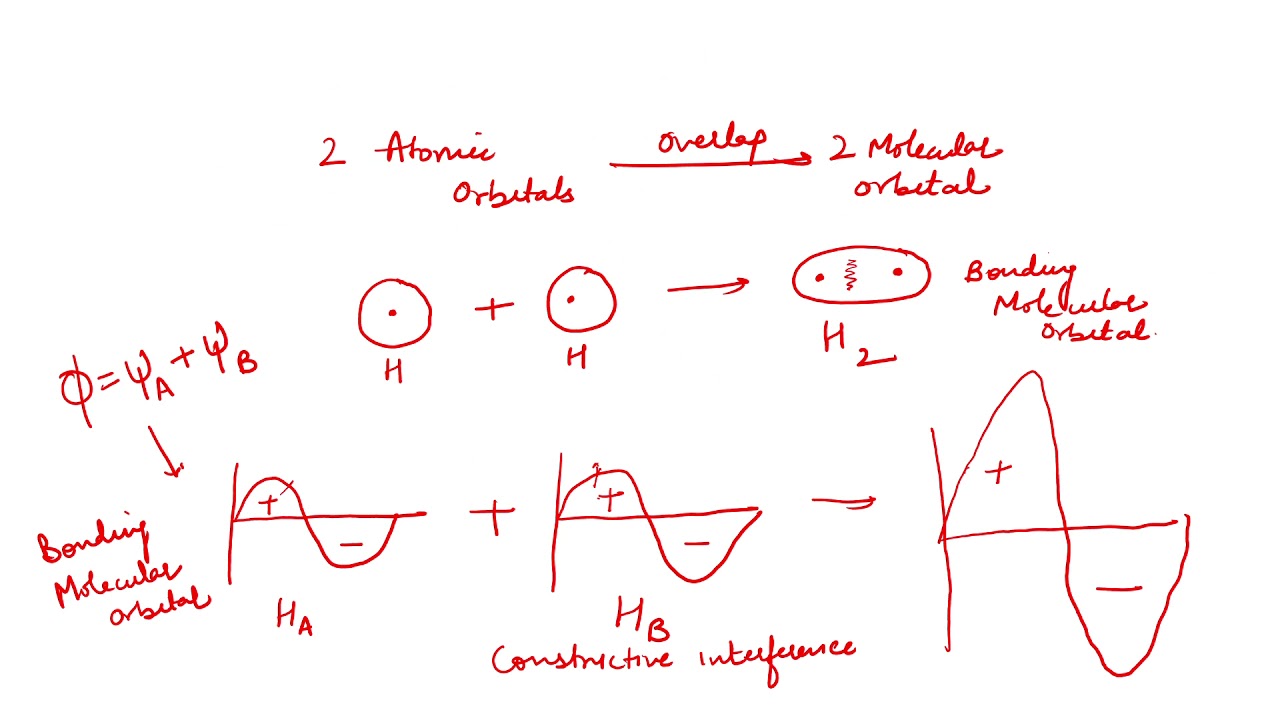 2 Atomic Orbitals overlap 2 Molecular orbital
H + H H2
Bonding
Molecular
orbital.
ϕ = ψA + ψB
Bonding
Molecular
orbital
+ − + + − + −
HA HB
Constrictive interference